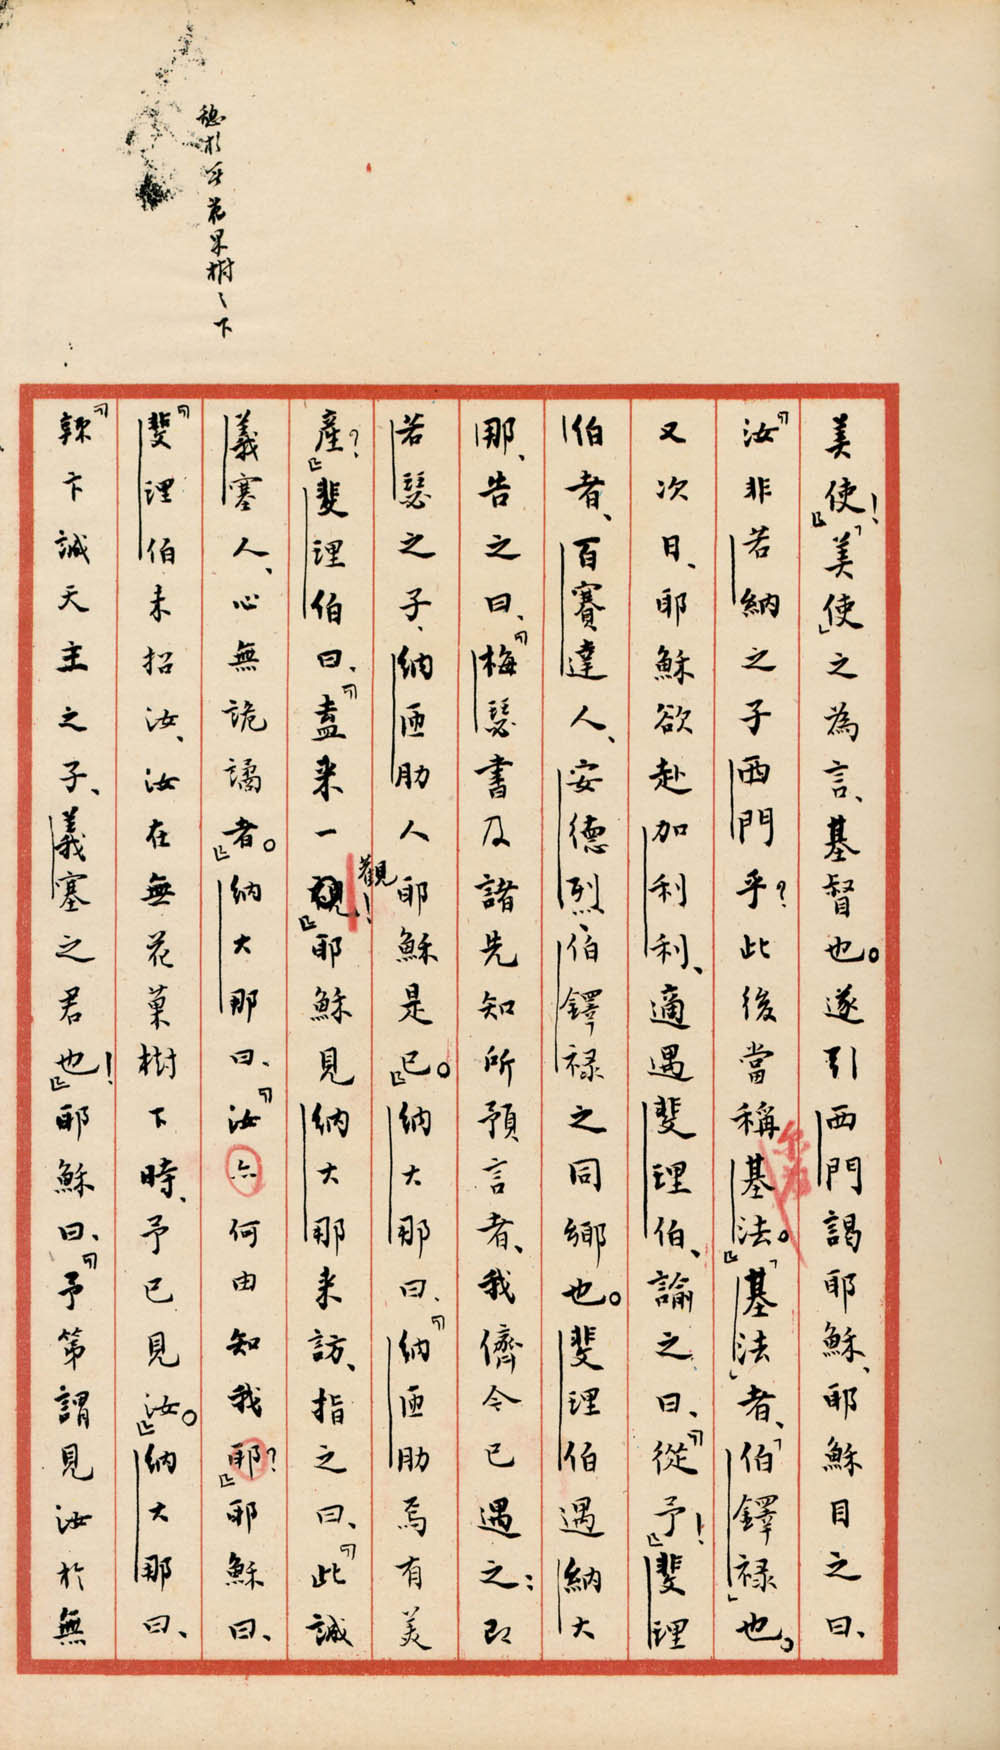 美使!』「美使」之為言、基督也。遂引西門謁耶穌、耶穌目之曰、
『汝非若納之子西門乎?此後當稱基法。』「基法」者、「伯鐸祿」也。
又次日、耶穌欲赴加利利、適遇斐理伯、諭之曰、『從予!』斐理
伯者、百賽達人、安德烈、伯鐸祿之同鄉也。斐理伯遇納大
那、告之曰、『梅瑟書及諸先知所預言者、我儕今已遇之:即
若瑟之子、納匝肋人耶穌是已。』納大那曰、『納匝肋焉有美
產?』斐理伯曰、『盍來一觀!』耶穌見納大那來訪、指之曰、『此誠
義塞人、心無詭譎者。』納大那曰、『汝亦何由知我耶?』耶穌曰、
『斐理伯未招汝、汝在無花菓樹下時、予已見汝。』納大那曰、
『辣卞誠天主之子、義塞之君也!』耶穌曰、『予第謂見汝於無
花果樹之下